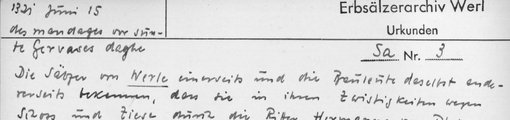 1321 Juni 15
des mandages vor sün-
te Gervases daghe
Erbsälzerarchiv Werl
Urkunden
Sa Nr. 3
Die Sälzer von Werle einerseits und die Bauleute daselbst ande-
rerseits bekennen, dass sie in ihren Zwistigkeiten wegen
Schoss und Ziese durch die Ritter Hermann